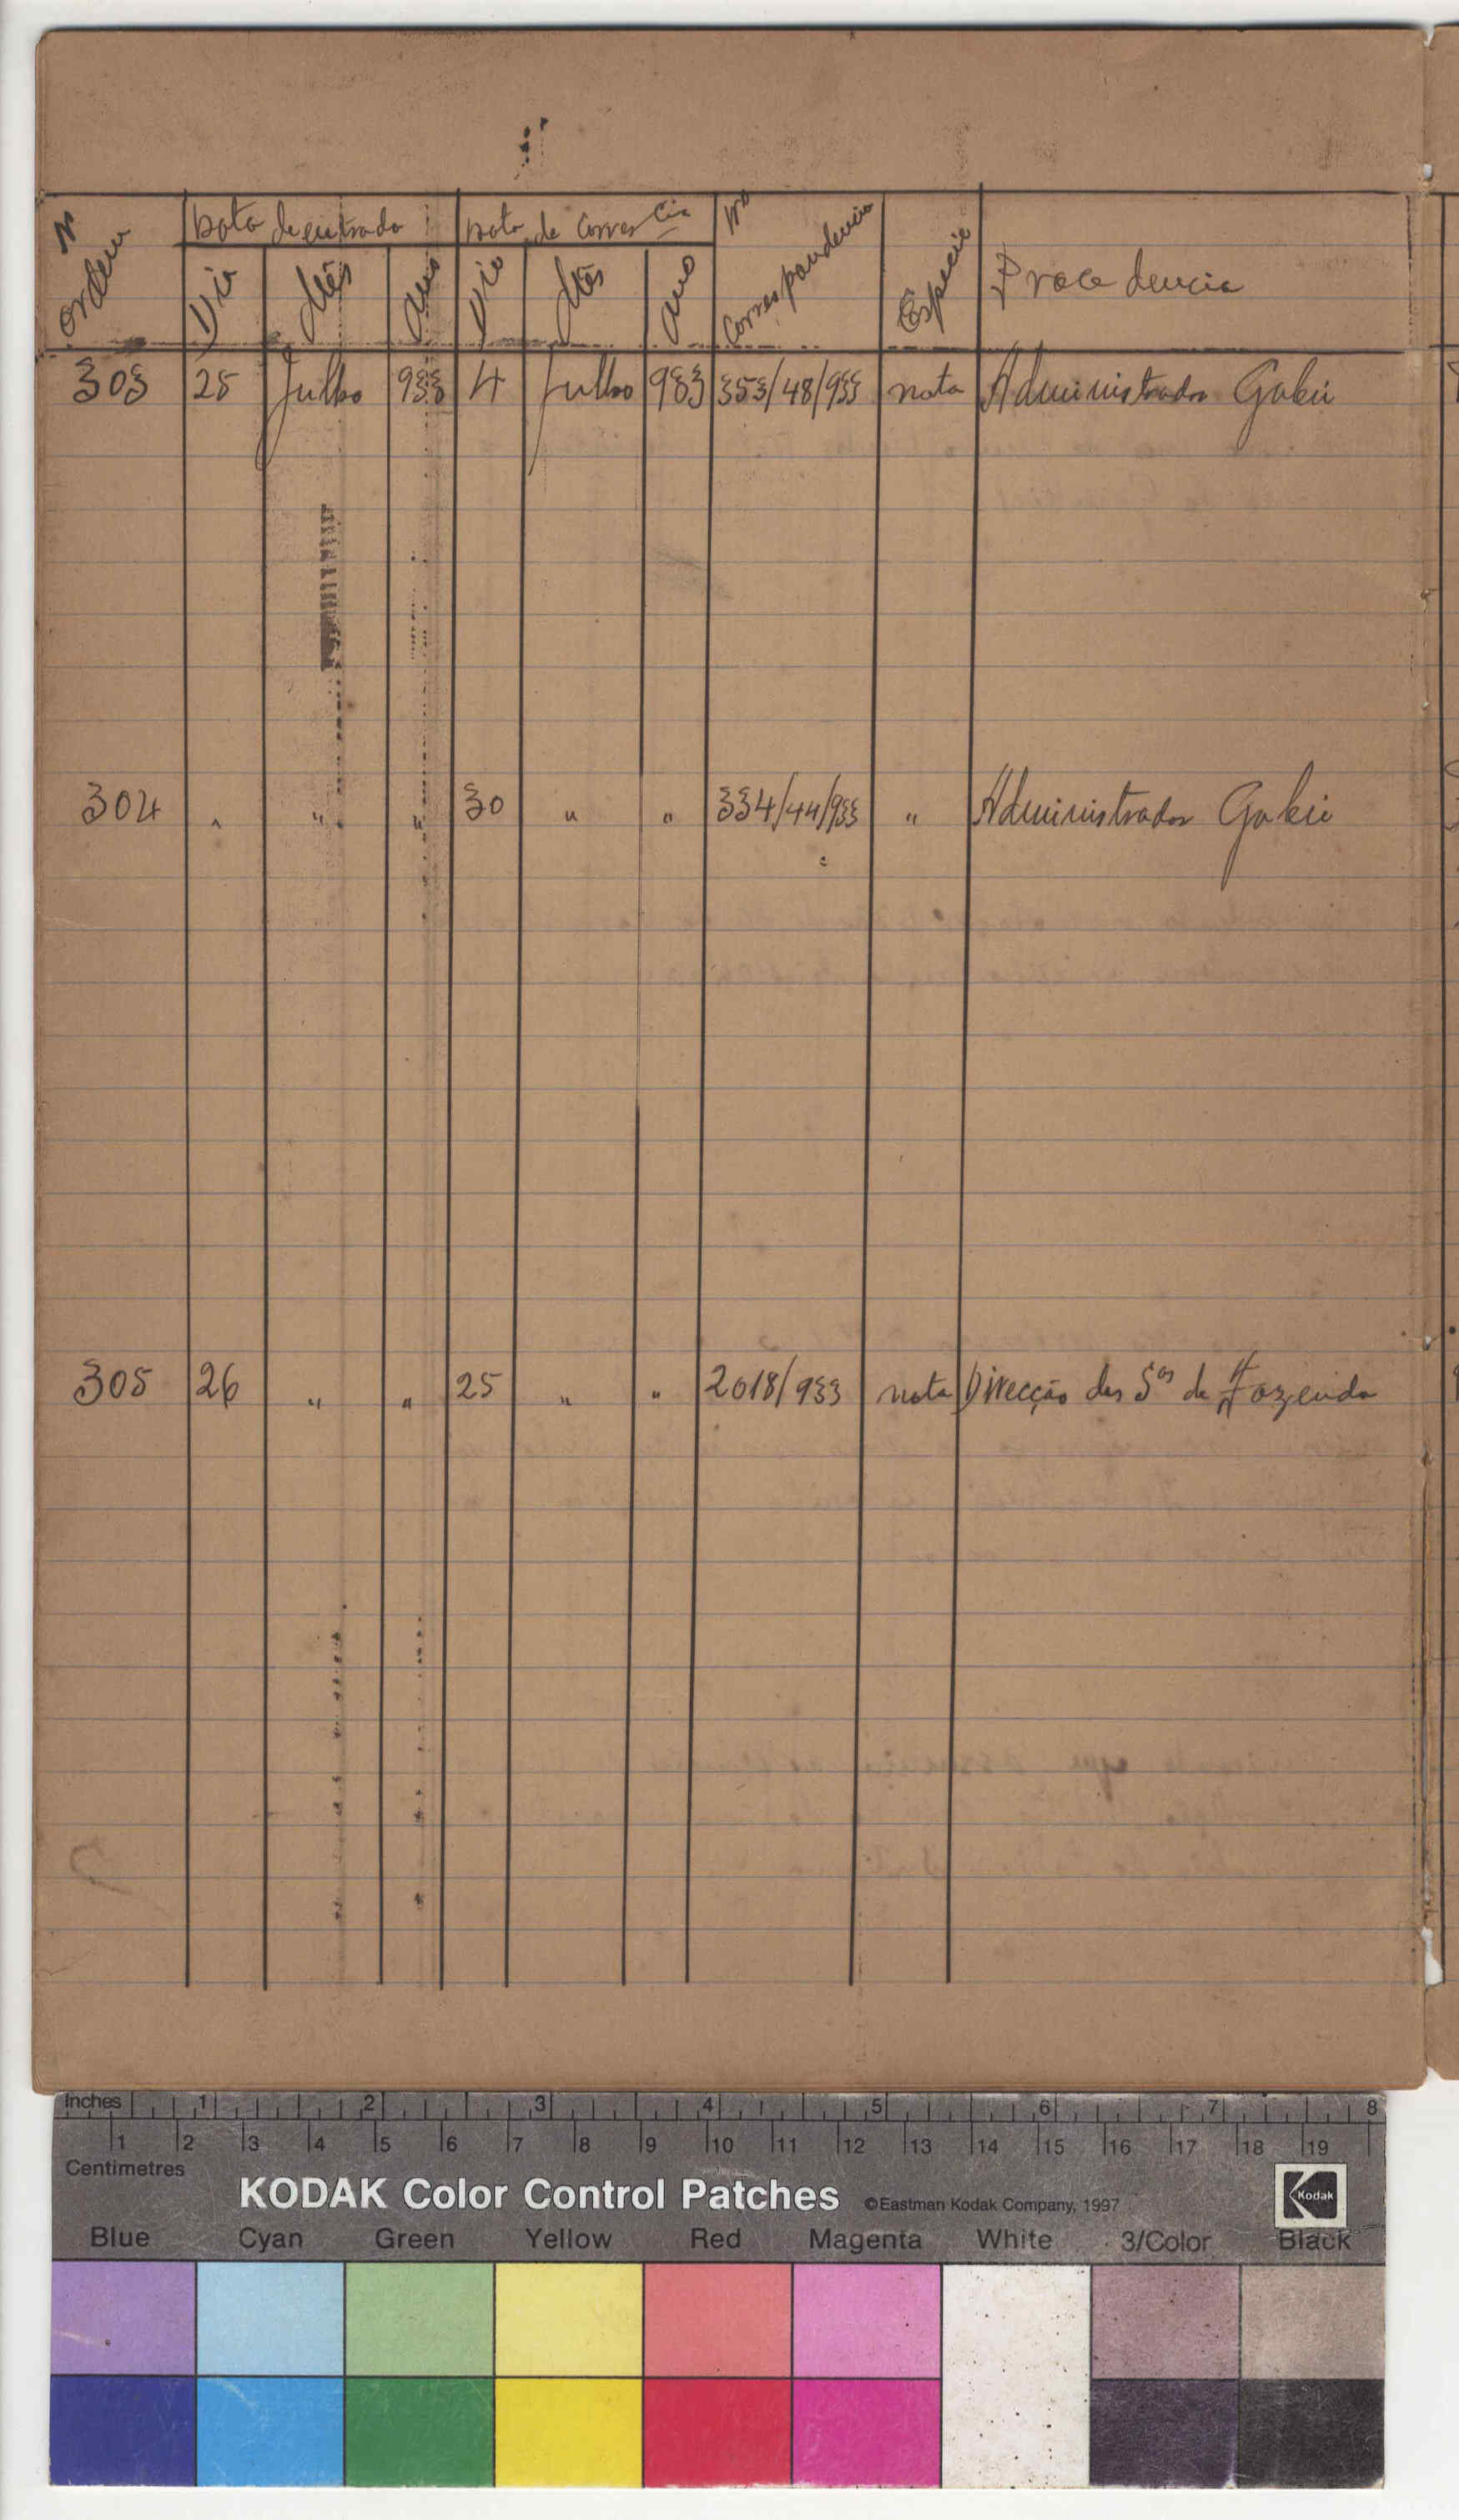 Nº ordem Data de entrada Data de Corres cia Nº Correspondencia Especie Procedencia
Dia Mês Ano Dia Mês Ano
303 25 Julho 933 4 Julho 933 353/48/933 nota Administrador Gabú
304 " " " 30 " " 334/44/933 " Administrador Gabú
305 26 " " 25 " " 2018/933 nota Direcção dos Sos de Fazenda
Inches 1 2 3 4 5 6 7 8
1 2 3 4 5 6 7 8 9 10 11 12 13 14 15 16 17 18 19
Centimetres
KODAK Color Control Patches ©Eastman Kodak Company, 1997 Kodak
Blue Cyan Green Yellow Red Magenta White 3/Color Black